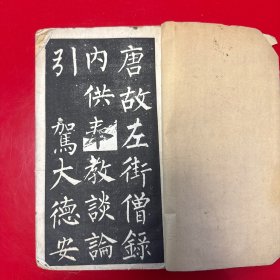 唐故左街僧錄
内供奉教談論
引駕大德安